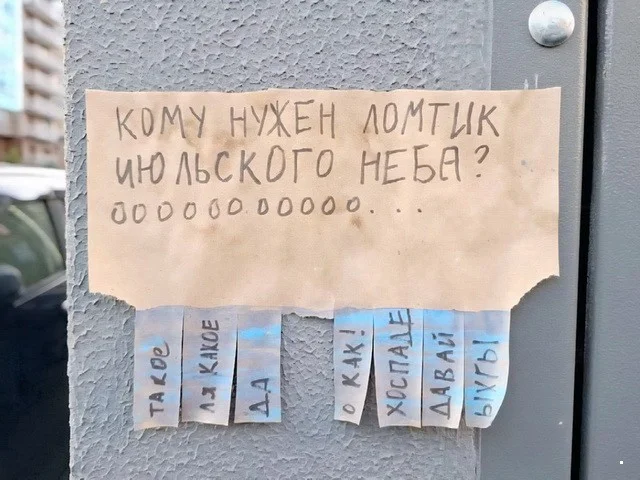 КОМУ НУЖЕН ЛОМТИК
ИЮЛЬСКОГО НЕБА?
ООООООООООО...
ТАКОЕ
ЛЯ КАКОЕ
ДА
О КАК!
ХОСПАДЕ
ДАВАЙ
ЫХГЫ